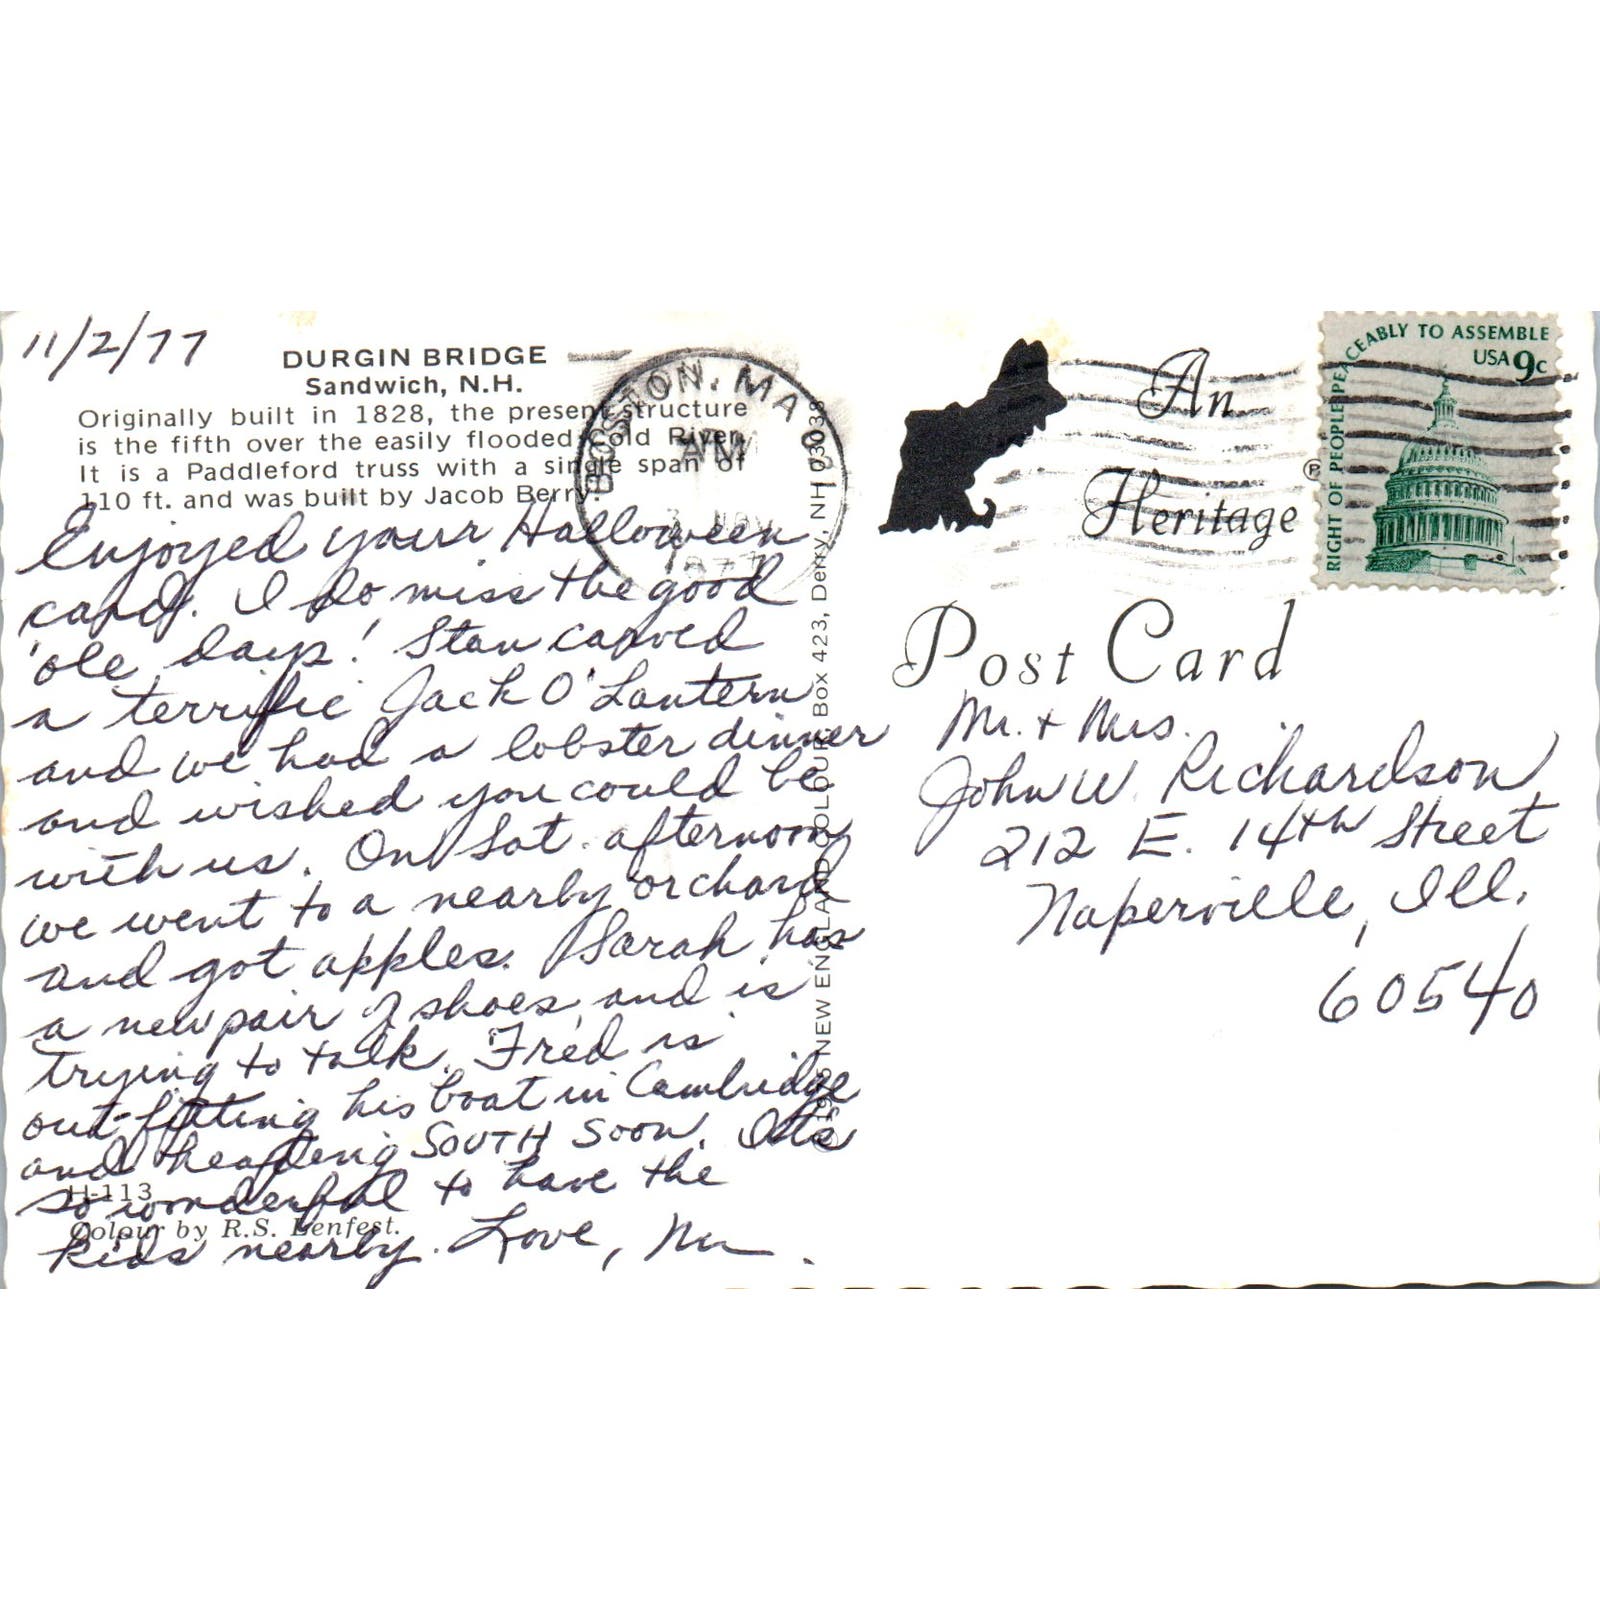 11/2/77
DURGIN BRIDGE
Sandwich, N.H.
Originally built in 1828, the present structure
is the fifth over the easily flooded Cold River.
It is a Paddleford truss with a single span of
110 ft. and was built by Jacob Berry.
Enjoyed your Halloween
card. I do miss the good
'ole days! Stan carved
a terrific Jack O'Lantern
and we had a lobster dinner
and wished you could be
with us. On Sat. afternoon
we went to a nearby orchard
and got apples. Sarah has
a new pair of shoes and is
trying to talk. Fred is
out-fitting his boat in Cambridge
and heading SOUTH soon. Its
so wonderful to have the
kids nearby. Love,
H-113
Colour by R.S. Lenfest.
BOSTON, MA
AM
NOV
1977
© 1975 NEW ENGLAND COLOUR BOX 423, Derry, NH 03038
An
Heritage
Post Card
RIGHT OF PEOPLE PEACEABLY TO ASSEMBLE
USA 9c
Mr. + Mrs.
John W. Richardson
212 E. 14th Street
Naperville, Ill.
60540